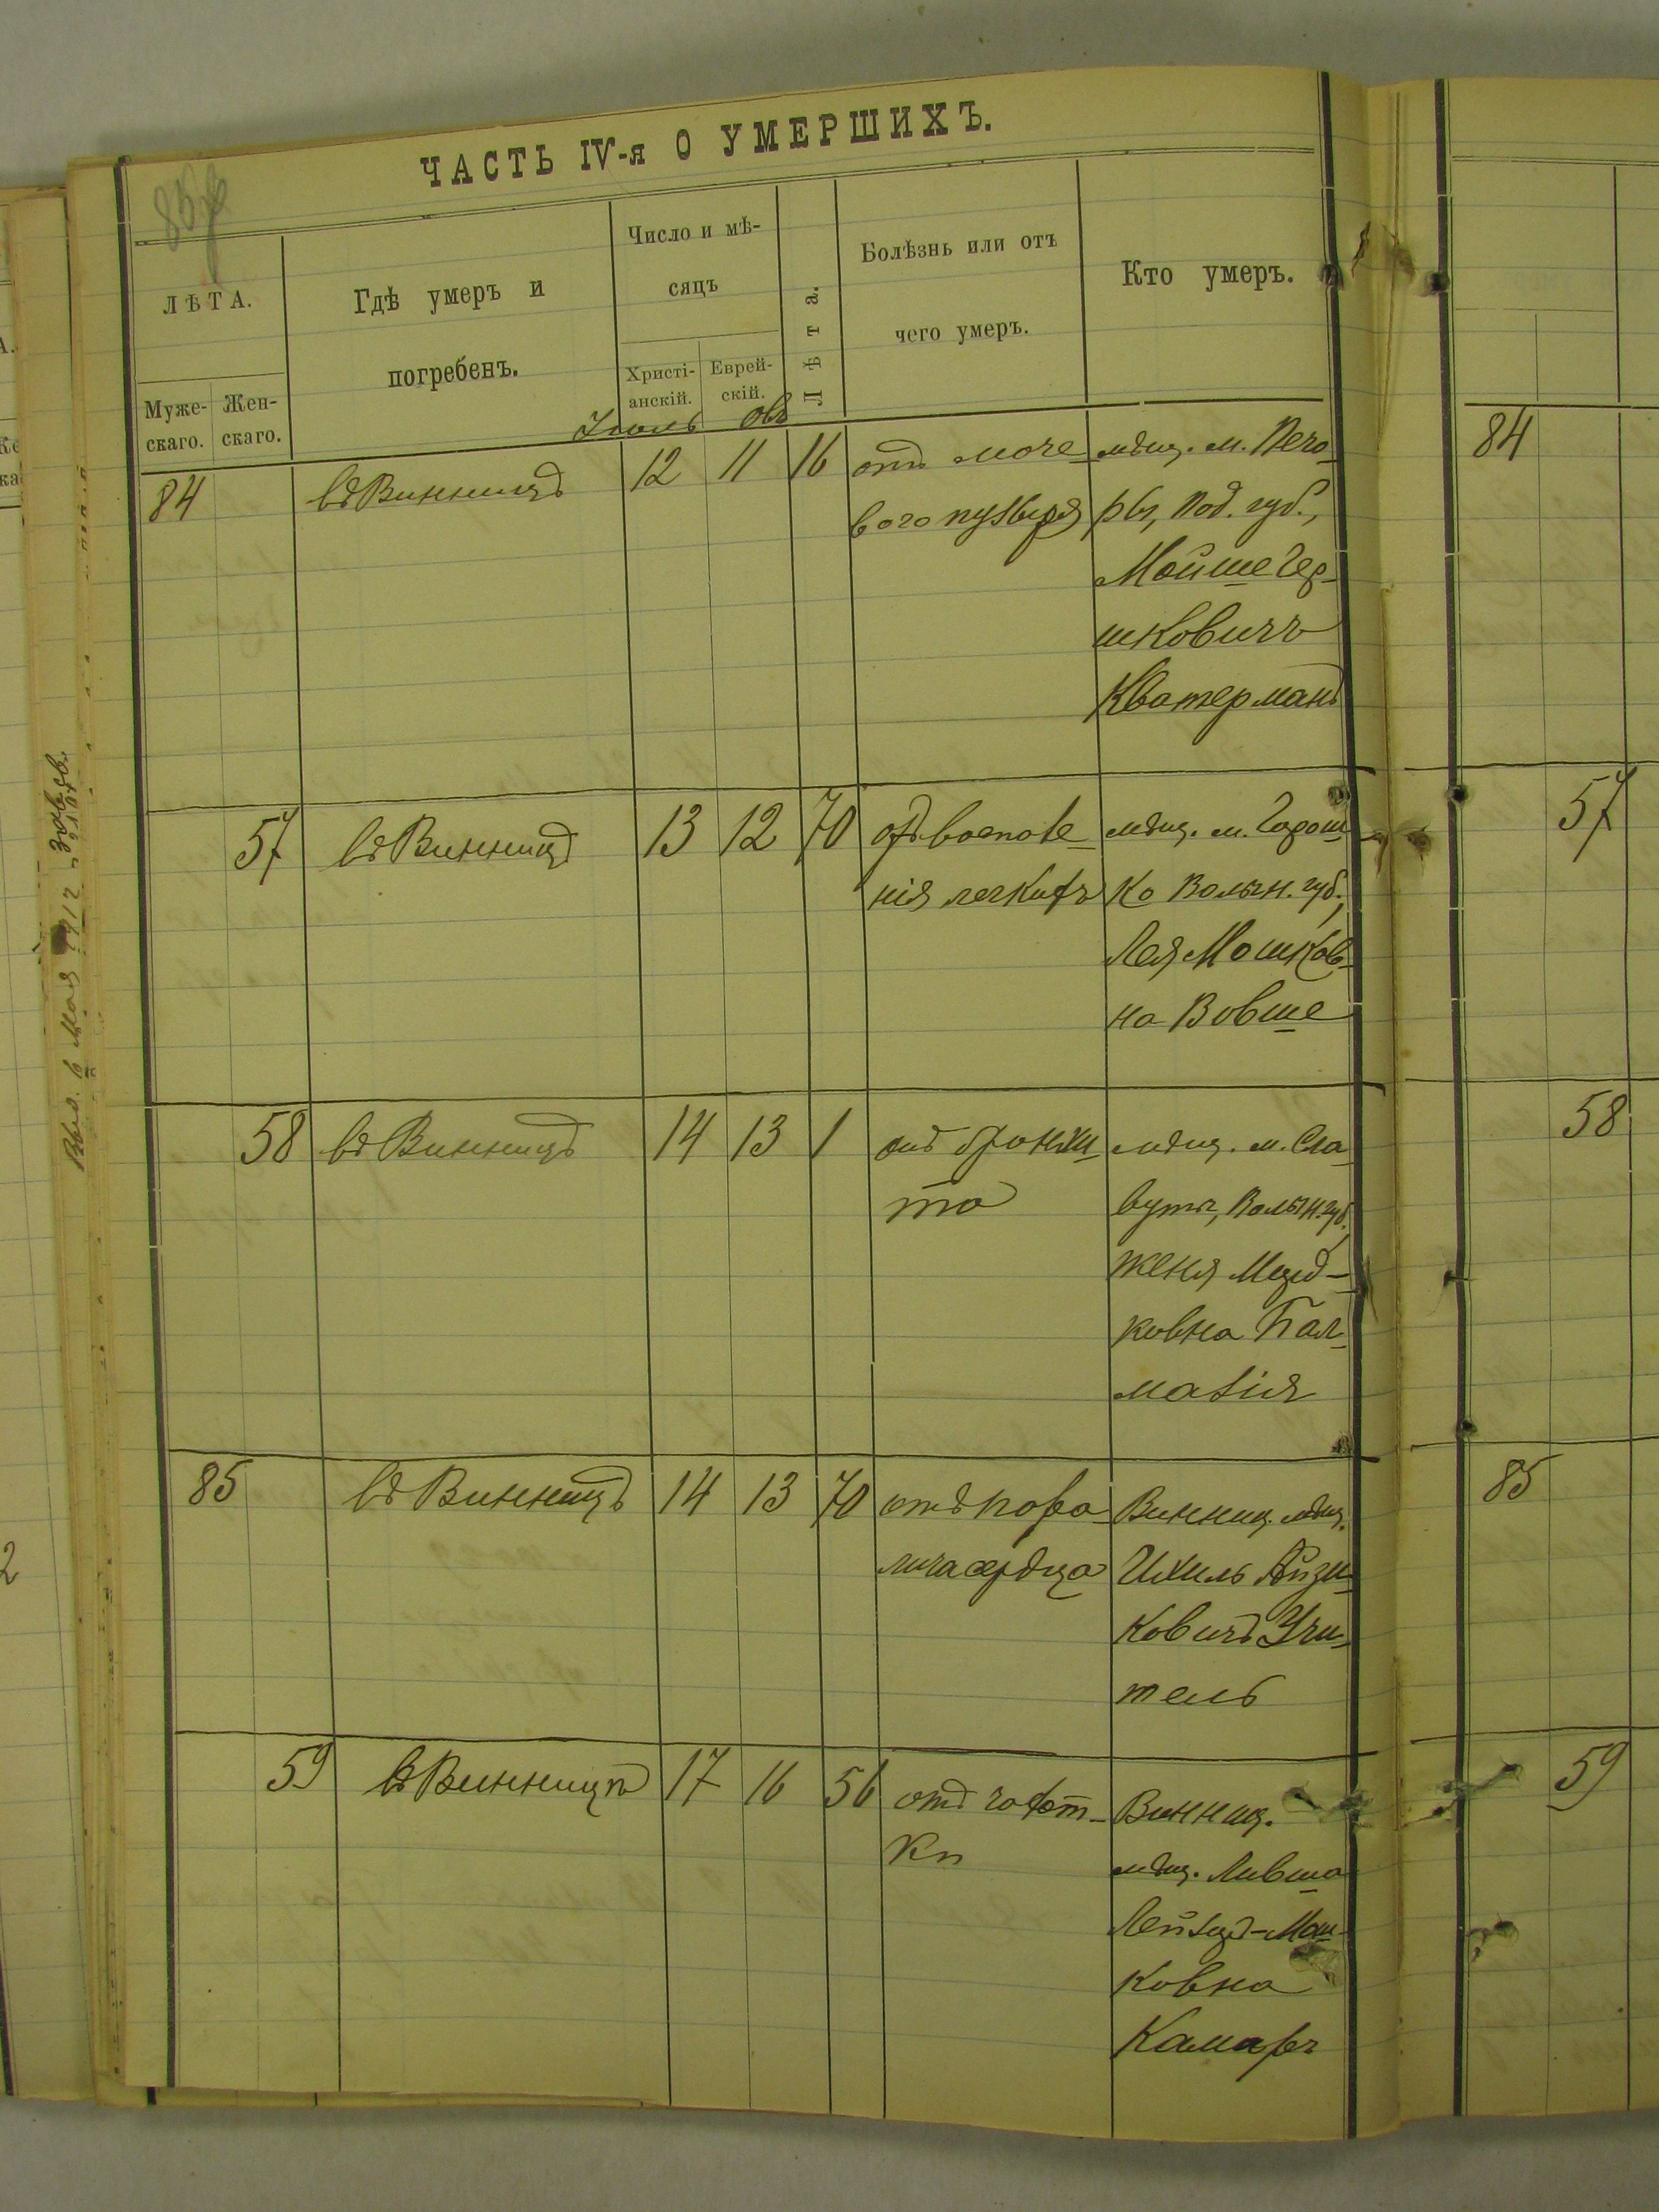 ЧАСТЬ IV-я О УМЕРШИХЪ.
ЛѢТА.
Муже-
скаго.
Жен-
скаго.
Гдѣ умеръ и
погребенъ.
Число и мѣ-
сяцъ
Христі-
анскій.
Еврей-
скій.
Лѣта.
Болѣзнь или отъ
чего умеръ.
Кто умеръ.
Іюль Овъ
84 въ Винницѣ 12 11 16 отъ моче-
вого пузыря
мѣщ. м. Печо-
ры, Под. губ.,
Мойше Гер-
шковичъ
Кватерманъ
84
57 въ Винницѣ 13 12 70 отъ воспале-
нія легкихъ
мѣщ. м. Горош-
ко Волын. губ.,
Лея Мошков-
на Вовше
57
58 въ Винницѣ 14 13 1 отъ бронхи-
та
мѣщ. м. Сла-
вуты, Волын. губ.,
Женя Ицид-
ковна Бал-
магія
58
85 въ Винницѣ 14 13 70 отъ пора-
лича сердца
Винниц. мѣщ.
Ихиль Айзи-
ковичъ Учи-
тель
85
59 въ Винницѣ 17 16 56 отъ чахот-
ки
Винниц.
мѣщ. Ливша
Мош-
ковна
Камаръ
59